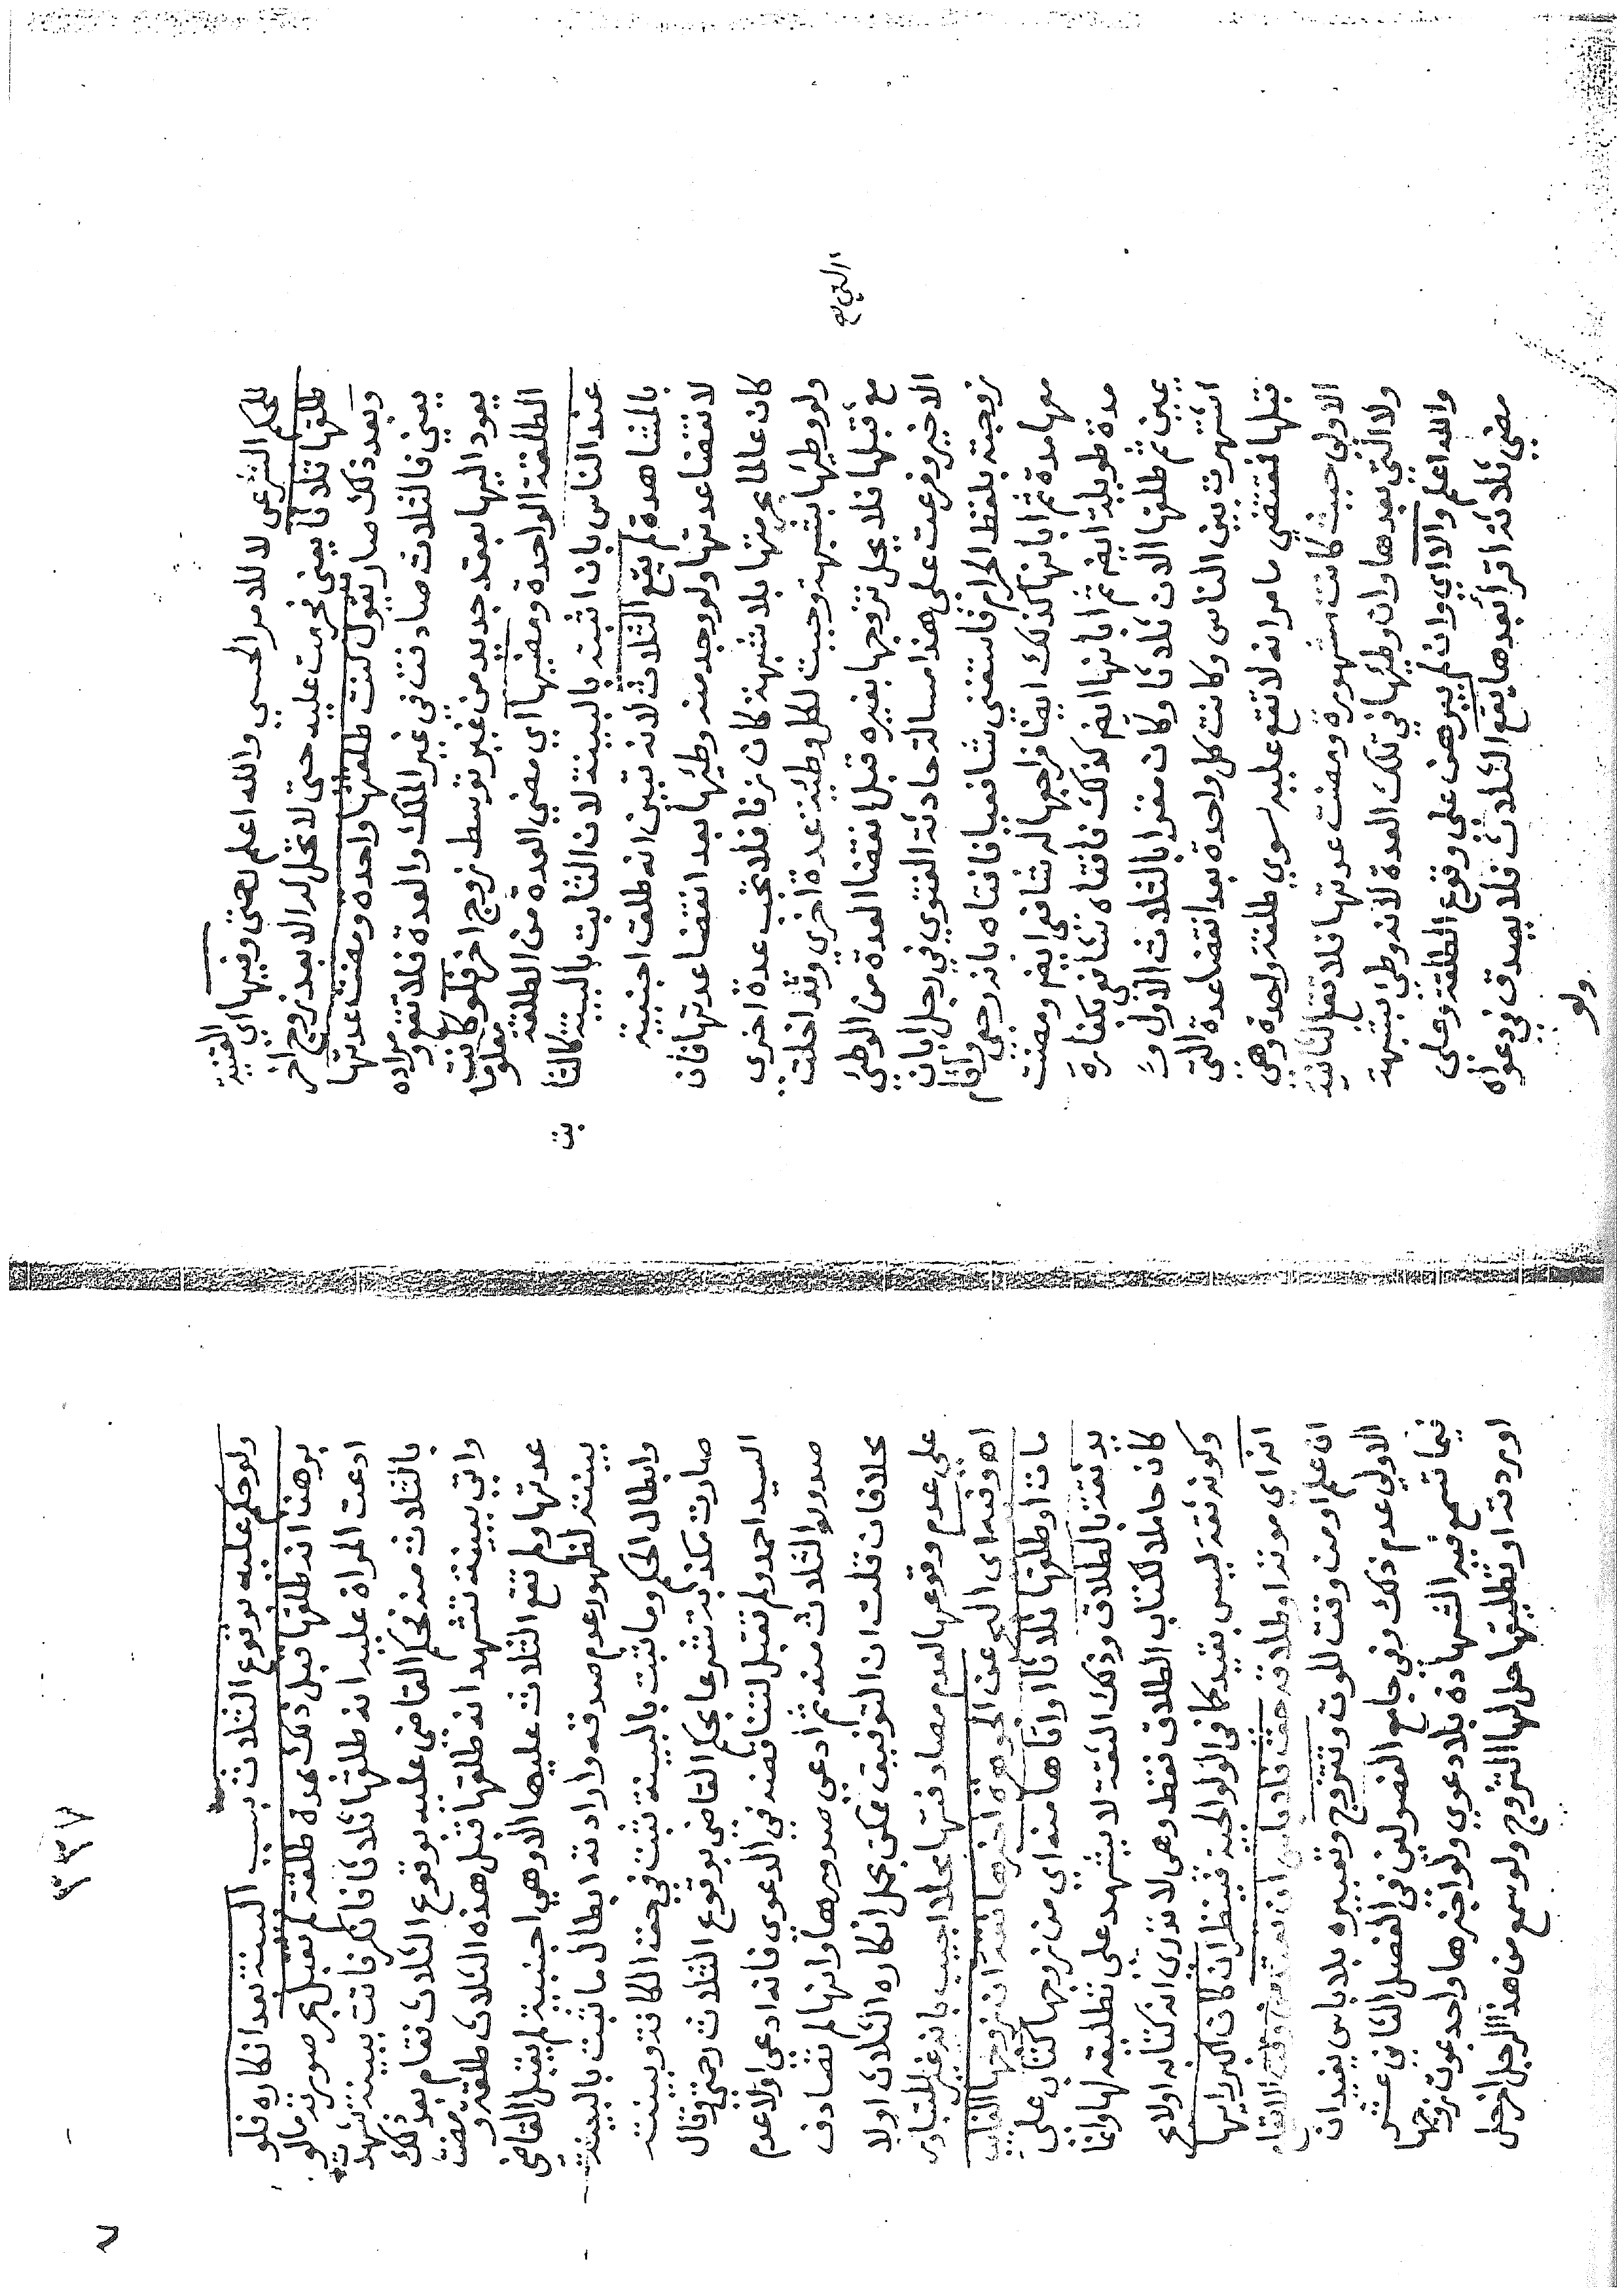 للحكم الشرعي لا للامر الحسي والله اعلم لمحق وفيها اي القنية
طلقها ثلاثا يعني نحرمت عليه حتى لا تحل له الا بعد زوج اخر
وبعد ذلك صار يقول كنت طلقتها واحدة ومضت عدتها مراده
يعني فالثلاث صادفت في غير الملك والعدة فلا تقع و
يعود اليها بعقد جديد من غير توسط زوج اخر فلو كانت معلوما
الطلقة الواحدة ومضيها اي مضي العدة من الطلقة
عند الناس بان اثبته بالبينة لان الثابت بالبينة كالثا
بت
بالمشاهدة لم يقع الثلاث لانه تبين انه طلقت اجنبية
لانقضا عدتها ولو وجد منه وطيها بعد انقضا عدتها فان
كان عالما بحرمتها بلا شبهة كان زنا فلا تجب عدة اخرى
ولو وطيها بشبهة وجبت لكل وطئة عدة اخري وتداخلت
التي مع
مع قبلها فلا يحل تزوجها بغيره قبل انقضا العدة من الوطئ
الاخير وفرعت على هذا مسالة حادثة الفتوي في رجل ابان
زوجته بلفظ الحرام فاستفتى شافعيا فافتاه بانه رجعي واقام
معها مدة ثم ابانها كذلك ايضا فراجعها له شافعي ايضا ومضت
مدة طويلة ايضا ثم ابانها ايضا كذلك فافتاه شافعي بكفارة
يمين ثم طلقها الان ثلاثا وكان مقرا بالثلاث الاول و
اشتهرت بين الناس وكانت كل واحدة بعد انقضا عدة التي
قبلها فمقتضي ما مر انه لا تقع عليه سوي طلقة واحدة وهي
الاولي حيث كانت مشهورة ومضت عدتها فلا تقع الثانية
ولا التي بعدها وان وطيها في تلك العدة لانه وطي بشبهة
والله اعلم والا اي وان لم يبرهن علي وقوع الطلقة وعلى
مضي ثلاثة اقرا بعدها يقع الثلاث فلا يصدق في دعواه
ولو
٣٣٧
ولو حكم عليه بوقوع الثلاث بسبب البينة بعد انكاره فلو
برهن انه طلقها قبل ذلك بمدة طلقة لم تقبل بحر صورته ما لو
ادعت المراة عليه انه طلقها ثلاثا فانكر فاتت ببينة تشهد
بالثلاث منه فحكم القاضي عليه بوقوع الثلاث فقام بعد ذلك
واتي ببينة تشهد انه طلقها قبل هذه الثلاث طلقة و مضت
عدتها ولم تقع الثلاث عليها الا وهي اجنبية لم يقبل القاضي
بينته لظهور عدم صدقه وارادته ابطال ما ثبت بالبينة
وابطال الحكم وما ثبت بالبينة ثبت في حق الكافة وبينته
صارت مكذبة شرعا بحكم القاضي بوقوع الثلاث رحمتي وقال
السيد احمد ولم تقبل لتناقضه في الدعوي فانه ادعي اولا عدم
صدور الثلاث منه ثم ادعي صدورها وانها لم تصادف
محلا فان قلت ان التوفيق يمكن بحمل انكاره الثلاث اولا
علي عدم وقوعها لعدم مصادفتها محلا اجيب بانه غير المتبادر
اه وفيه اي البحر عن الجوهرة اخبرها ثقة ان زوجها الغائب
مات او طلقها ثلاثا او اتاها منه اي من زوجها كتاب على
يد ثقة بالطلاق وذلك الثقة لا يشهد على تطليقه لها وانما
كان حاملا لكتاب الطلاق فقط وهي لا تدري انه كتابه اولا ع
وكونه ثقة ليس بقيد كما في الولوالجية فلينظر ان كان اكبر رايها
انه اي موته او طلاقه حق فلا باس ان تعتد من وقت
ان علم او من وقت الموت وتتزوج وتعبيره بلا باس يفيد ان
الاولي عدم ذلك وفي جامع الفصولين في الفصل الثاني عشر
فيما تسمع فيه الشهادة بلا دعوي ولو اخبرها واحد بموت زوجها
او بردته او تطليقها حل لها التزوج ولو سمع من هذا الرجل اخر حل